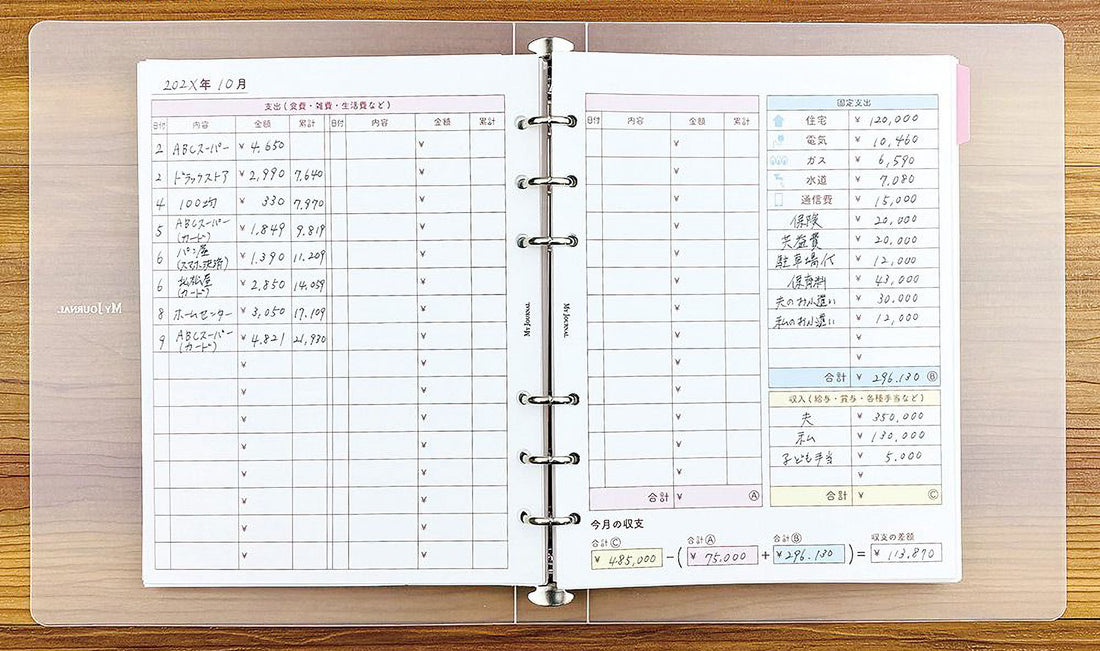 202X年 10月
支出(食費・雑費・生活費など)
日付 内容 金額 累計 日付 内容 金額 累計
2 ABCスーパー ¥ 4,650 ¥
2 ドラッグストア ¥ 2,990 7,640 ¥
4 100均 ¥ 330 7,970 ¥
5 ABCスーパー(カード) ¥ 1,849 9,819 ¥
6 パン屋(スマホ決済) ¥ 1,390 11,209 ¥
6 松松屋(カード) ¥ 2,850 14,059 ¥
8 ホームセンター ¥ 3,050 17,109 ¥
9 ABCスーパー(カード) ¥ 4,821 21,930 ¥
¥ ¥
¥ ¥
¥ ¥
¥ ¥
¥ ¥
¥ ¥
¥ ¥
¥ ¥
MY JOURNAL
MY JOURNAL
MY JOURNAL
日付 内容 金額 累計
¥
¥
¥
¥
¥
¥
¥
¥
¥
¥
¥
¥
¥
合計 ¥ Ⓐ
固定支出
住宅 ¥ 120,000
電気 ¥ 10,460
ガス ¥ 6,590
水道 ¥ 7,080
通信費 ¥ 15,000
保険 ¥ 20,000
共益費 ¥ 20,000
駐車場代 ¥ 12,000
保育料 ¥ 43,000
夫のお小遣い ¥ 30,000
私のお小遣い ¥ 12,000
¥
¥
合計 ¥ 296,130 Ⓑ
収入(給与・賞与・各種手当など)
夫 ¥ 350,000
私 ¥ 130,000
子ども手当 ¥ 5,000
¥
合計 ¥ Ⓒ
今月の収支
合計Ⓒ 合計Ⓐ 合計Ⓑ 収支の差額
¥ 485,000 −( ¥ 75,000 + ¥ 296,130 )= ¥ 113,870